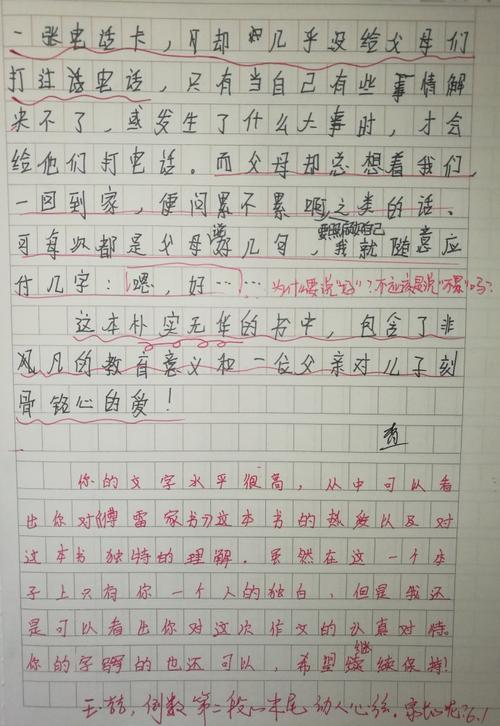 一张电话卡，可却几乎没给父母们
打过电话，只有当自己有些事情解
决不了，或发生了什么大事时，才会
给他们打电话。而父母却总想着我们，
一回到家，便问累不累啊之类的话、
要照顾好自己
可每次都是父母说好几句，我就随意应
付几字：嗯，好……为什么要说“好”？不应该是说“不累”吗？
这本朴实无华的书中，包含了非
凡的教育意义和一位父亲对儿子刻
骨铭心的爱！
你的文字水平很高，从中可以看
出你对《傅雷家书》这本书的热爱以及对
这本书独特的理解。虽然在这一个本
子上只有你一个人的独白，但是我还
是可以看出你对这次作文的认真对待。
你的字写的也还可以，希望继续保持！
倒数第二段的末尾动人心弦，6.1